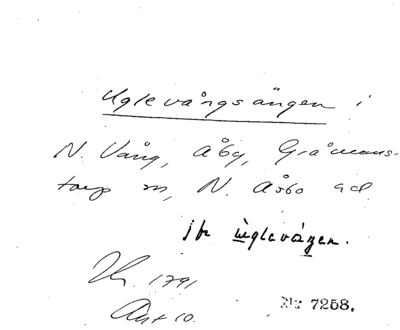 Uglevångsängen i
N. Vång, Åby, Gråmans-
torp sn, N. Åsbo hd.
jfr Uglevägen.
1791
Akt 10.
Nr 7258.